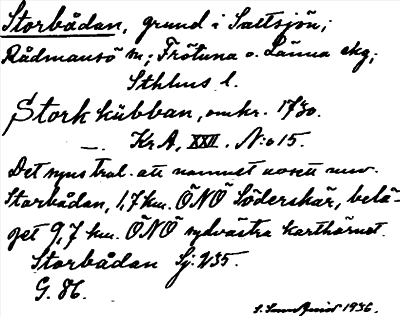 Storbådan, grund i Saltsjön;
Rådmansö sn; Frötuna o. Länna skg;
Sthlms l.
Stork kubban, omkr. 1730.
—. Kr A, XXII. N:o 15.
Det syns trol. att namnet avsett nuv.
Storbådan, 1,7 km. ÖNÖ Söderskär, belä-
get 9,7 km. ÖNÖ sydvästra karthörnet.
Storbådan Sj. 235.
G. 86.
1936.